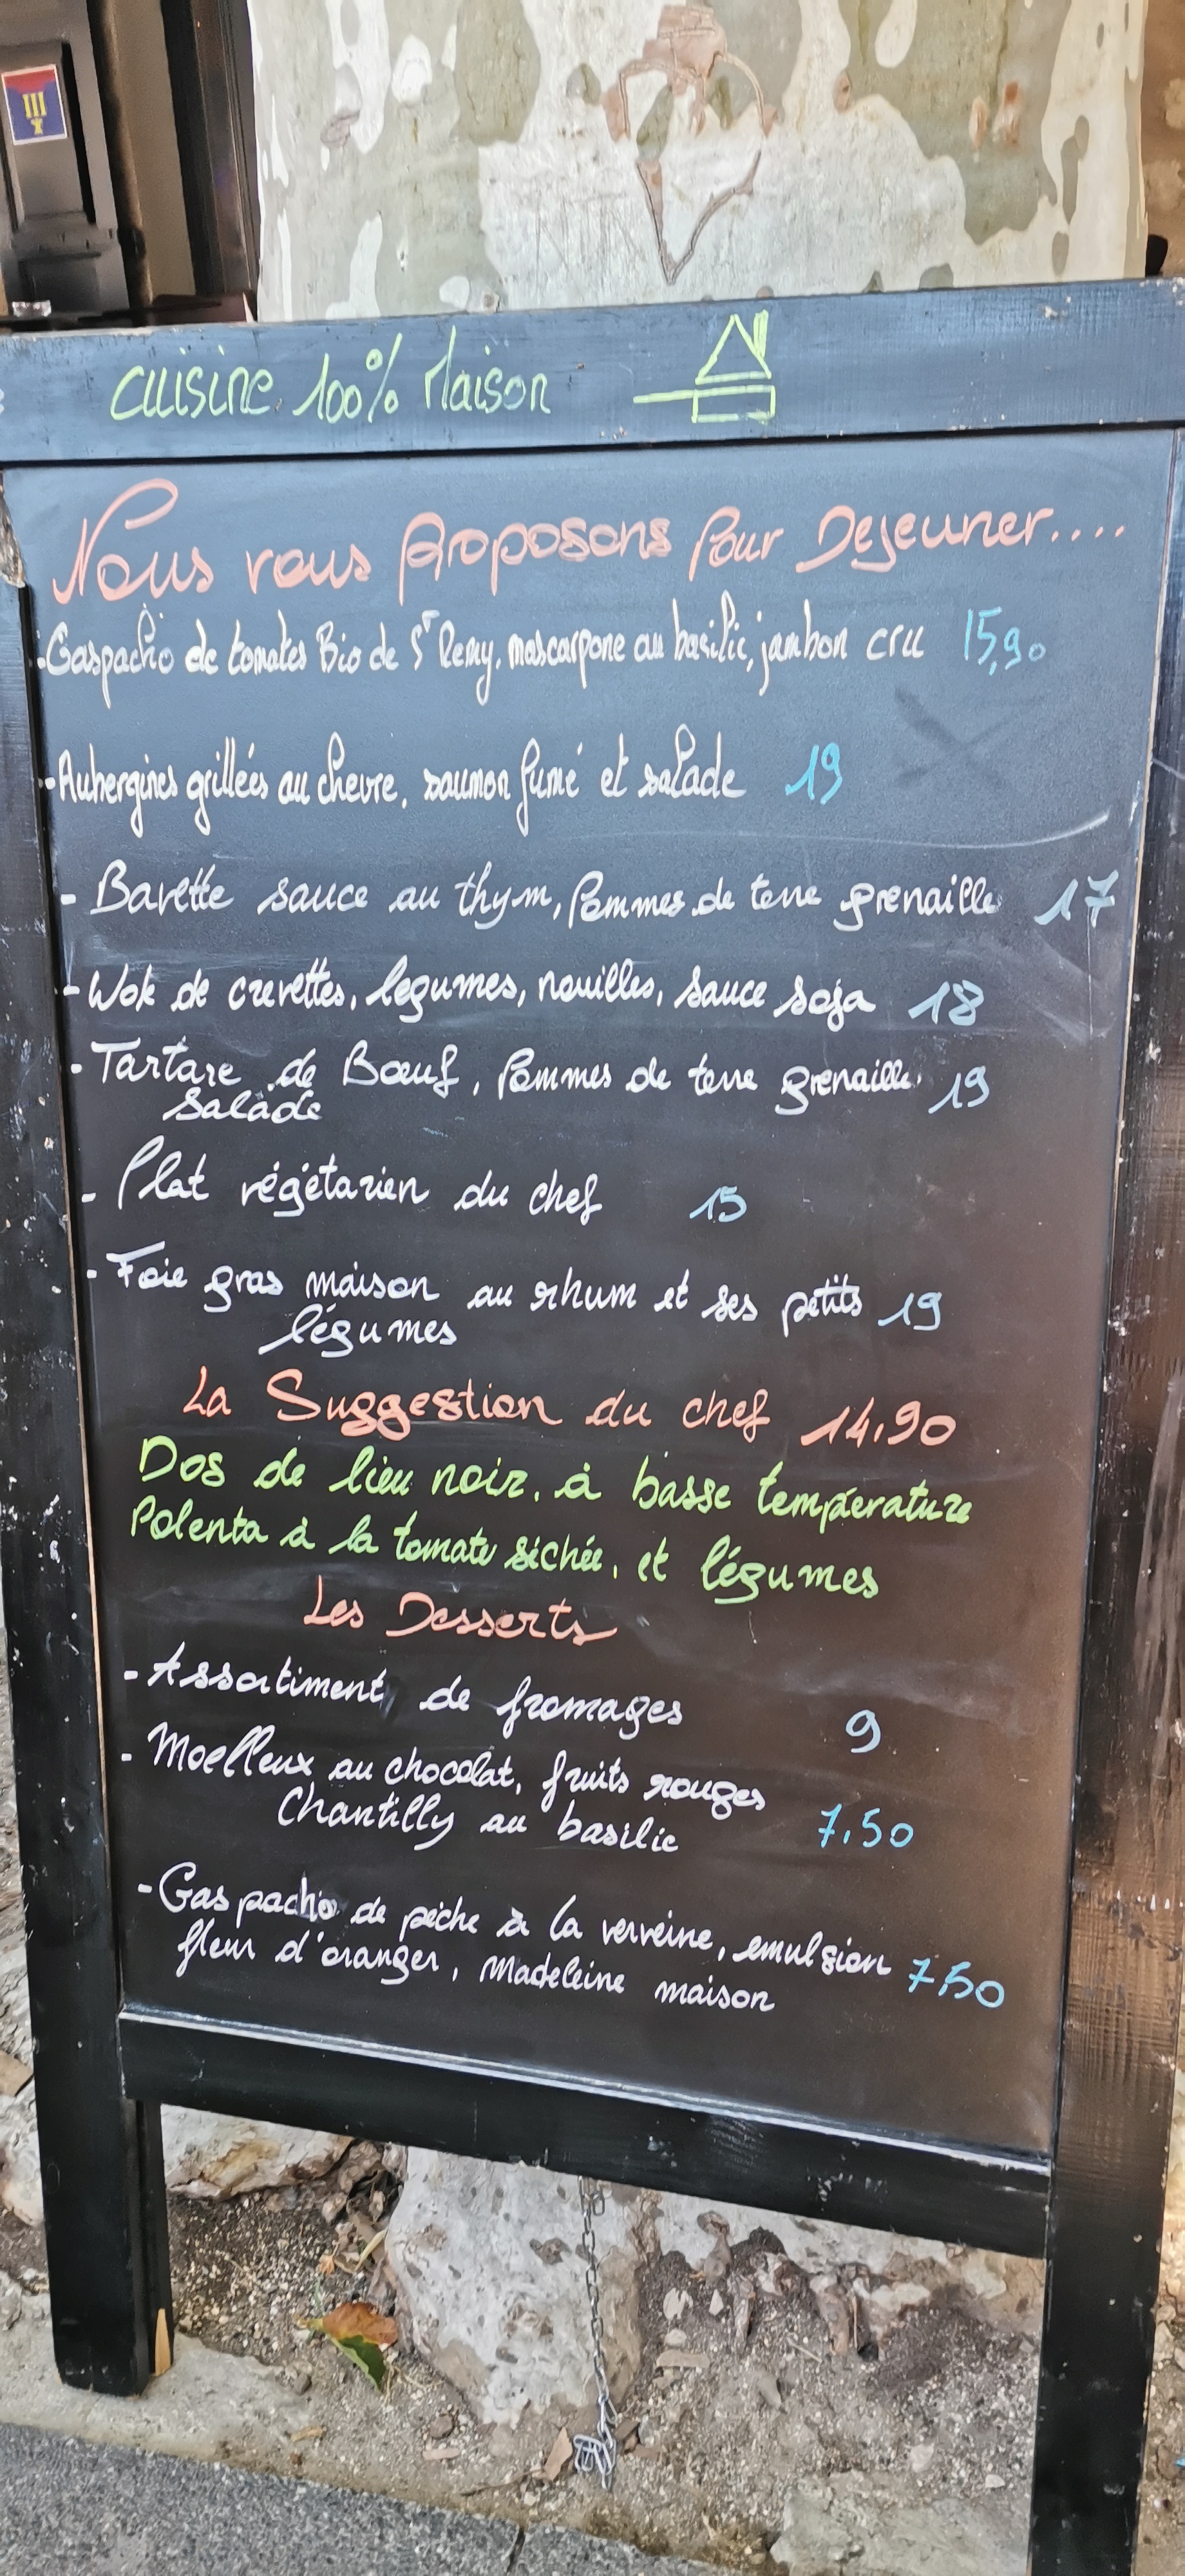 Cuisine 100% Maison
Nous vous Proposons Pour Dejeuner....
- Gaspacho de tomates Bio de St Remy, mascarpone au basilic, jambon cru 15,90
- Aubergines grillées au chevre, saumon fumé et salade 19
- Bavette sauce au thym, Pommes de terre grenaille 17
- Wok de crevettes, legumes, nouilles, sauce soja 18
- Tartare de Bœuf, Pommes de terre grenaille, 19
salade
- Plat végétarien du chef 15
- Foie gras maison au rhum et ses petits 19
légumes
La Suggestion du chef 14,90
Dos de lieu noir, à basse température
Polenta à la tomate séchée, et légumes
Les Desserts
- Assortiment de fromages 9
- Moelleux au chocolat, fruits rouges
Chantilly au basilic 7,50
- Gaspacho de pêche à la verveine, emulsion 7,50
fleur d'oranger, Madeleine maison